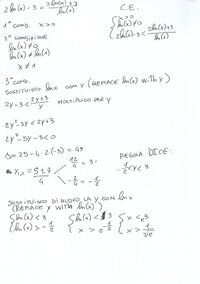 2 ln(x) - 3 < (2 ln(x) + 3)/ln(x)
C.E.
{ x > 0
ln(x) ≠ 0
2 ln(x) - 3 < (2 ln(x) + 3)/ln(x)
1° cond. x > 0
2° condizione
ln(x) ≠ 0
ln(x) ≠ ln(1)
x ≠ 1
3° cond.
SOSTITUISCO lnx CON y (REPLACE ln(x) WITH y)
2y - 3 < (2y + 3)/y MOLTIPLICO PER y
2y² - 3y < 2y + 3
2y² - 5y - 3 < 0
Δ = 25 - 4·2(-3) = 49
y₁,₂ = (5 ± 7)/4
12/4 = 3
-2/4 = -1/2
REGOLA DICE:
-1/2 < y < 3
SOSTITUISCO DI NUOVO LA y CON lnx
(REPLACE y WITH ln(x))
{ ln(x) < 3 { ln(x) < 3 { x < e³
ln(x) > -1/2 x > e^(-1/2) x > 1/√e